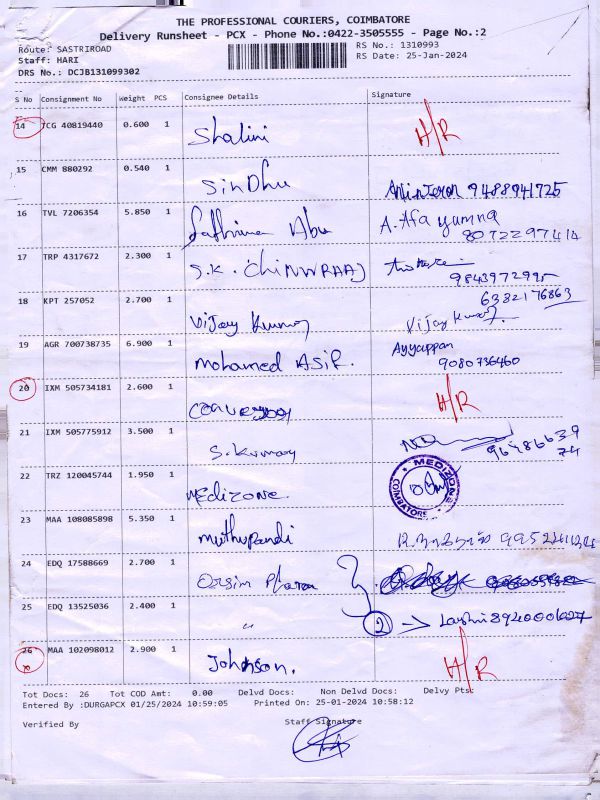 THE PROFESSIONAL COURIERS, COIMBATORE
Delivery Runsheet - PCX - Phone No.:0422-3505555 - Page No.:2
Route: SASTRIROAD RS No.: 1310993
Staff: HARI RS Date: 25-Jan-2024
DRS No.: DCJB131099302
S No Consignment No Weight PCS Consignee Details Signature
14 TCG 40819440 0.600 1
Shalini H/R
15 CMM 880292 0.540 1
SinDhu 9488941725
16 TVL 7206354 5.850 1
Fathima Abu A. Afa yumna
8072297414
17 TRP 4317672 2.300 1
S.K. CHINWRAAJ
9843972995
18 KPT 257052 2.700 1 6382176863
Vijay Kumar Vijay Kumar
19 AGR 700738735 6.900 1 Ayyappan
Mohamed ASiF. 9080736460
20 IXM 505734181 2.600 1
H/R
21 IXM 505775912 3.500 1
S. Kumar 9648663974
22 TRZ 120045744 1.950 1
Medizone. MEDIZONE COIMBATORE
23 MAA 108085898 5.350 1
Muthupandi
24 EDQ 17588669 2.700 1
25 EDQ 13525036 2.400 1
" 2 → 8940006027
26 MAA 102098012 2.900 1
Johnson. H/R
Tot Docs: 26 Tot COD Amt: 0.00 Delvd Docs: Non Delvd Docs: Delvy Pts:
Entered By :DURGAPCX 01/25/2024 10:59:05 Printed On: 25-01-2024 10:58:12
Verified By Staff Signature